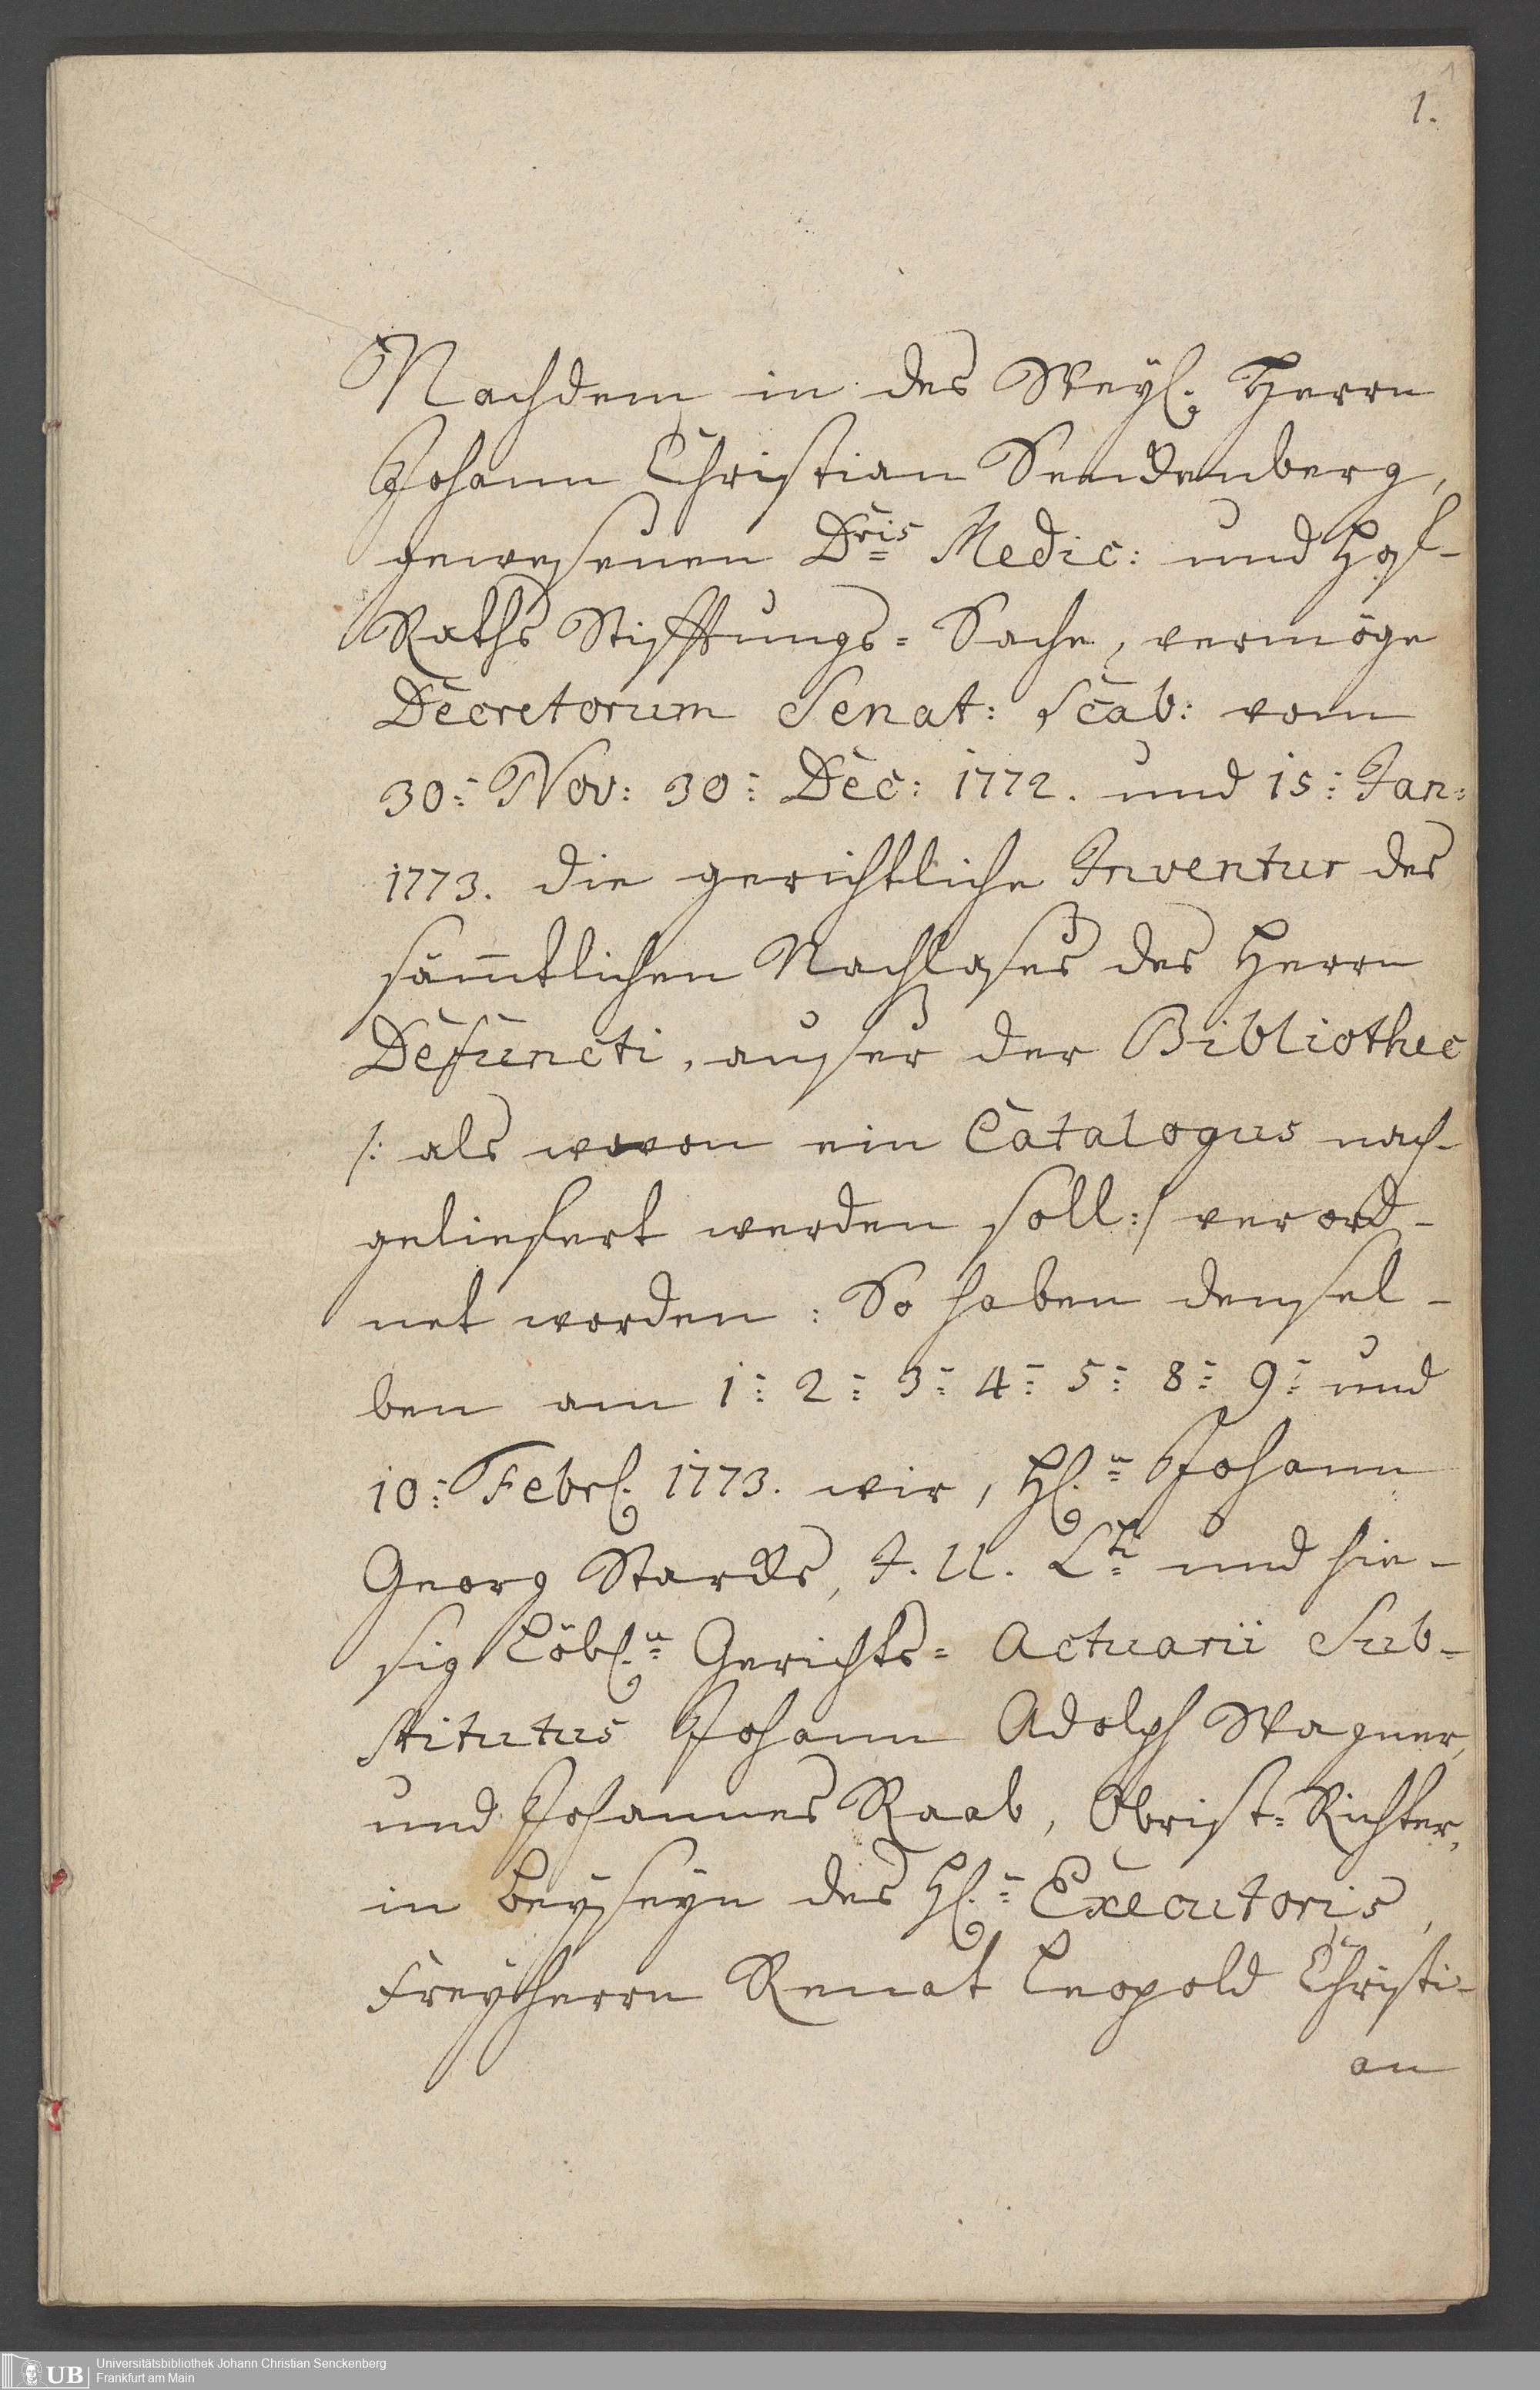 1
1.
Nachdem in des Weyl. Herrn
Johann Christian Senckenberg,
gewesenen Dris Medic: und Hof-
Raths Stifftungs= Sache, vermöge
Decretorum Senat: Scab: vom
30= Nov: 30= Dec: 1772. und 15= Jan:
1773. die gerichtliche Inventur des
sämtlichen Nachlaßes des Herrn
Defuncti, außer der Bibliothec
/: als wovon ein Catalogus nach-
geliefert werden soll :/ verord-
net worden: So haben densel-
ben am 1= 2= 3= 4= 5= 8= 9= und
10= Febrl. 1773. wir, Hl.n Johann
Georg Starcks, J. U. Lti und hie-
sig Löbl.n Gerichts= Actuarii Sub-
stitutus Johann Adolph Wagner,
und Johannes Raab, Obrist= Richter,
in beyseyn des Hl.= Executoris,
Freyherrn Renat Leopold Christi-
an
UB
Universitätsbibliothek Johann Christian Senckenberg
Frankfurt am Main